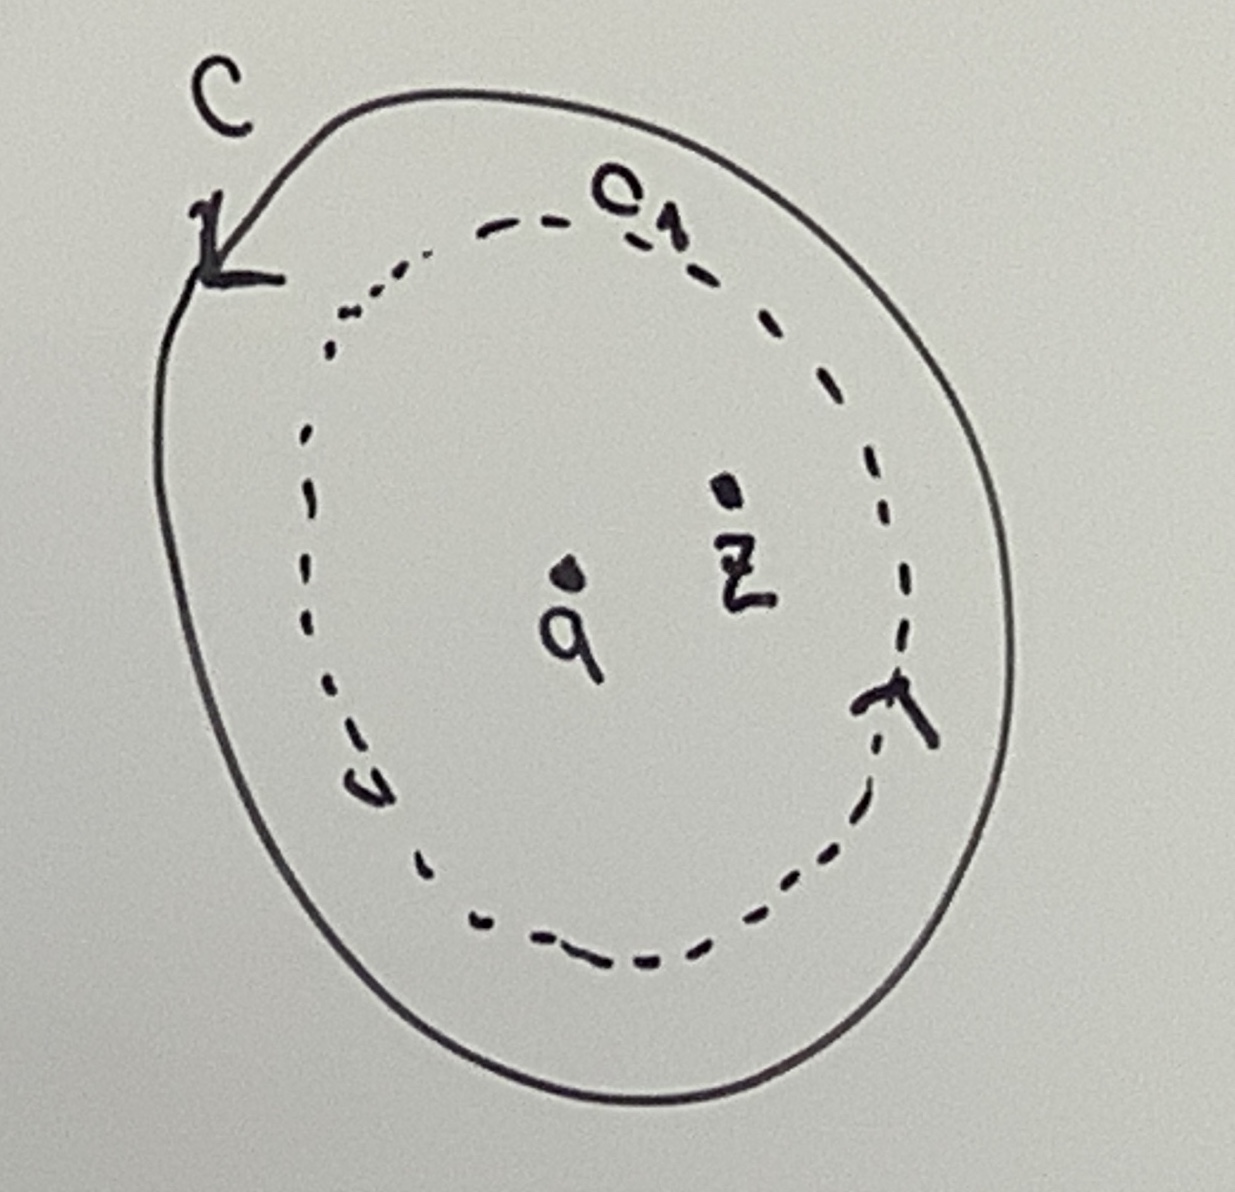 C
C1
z
a